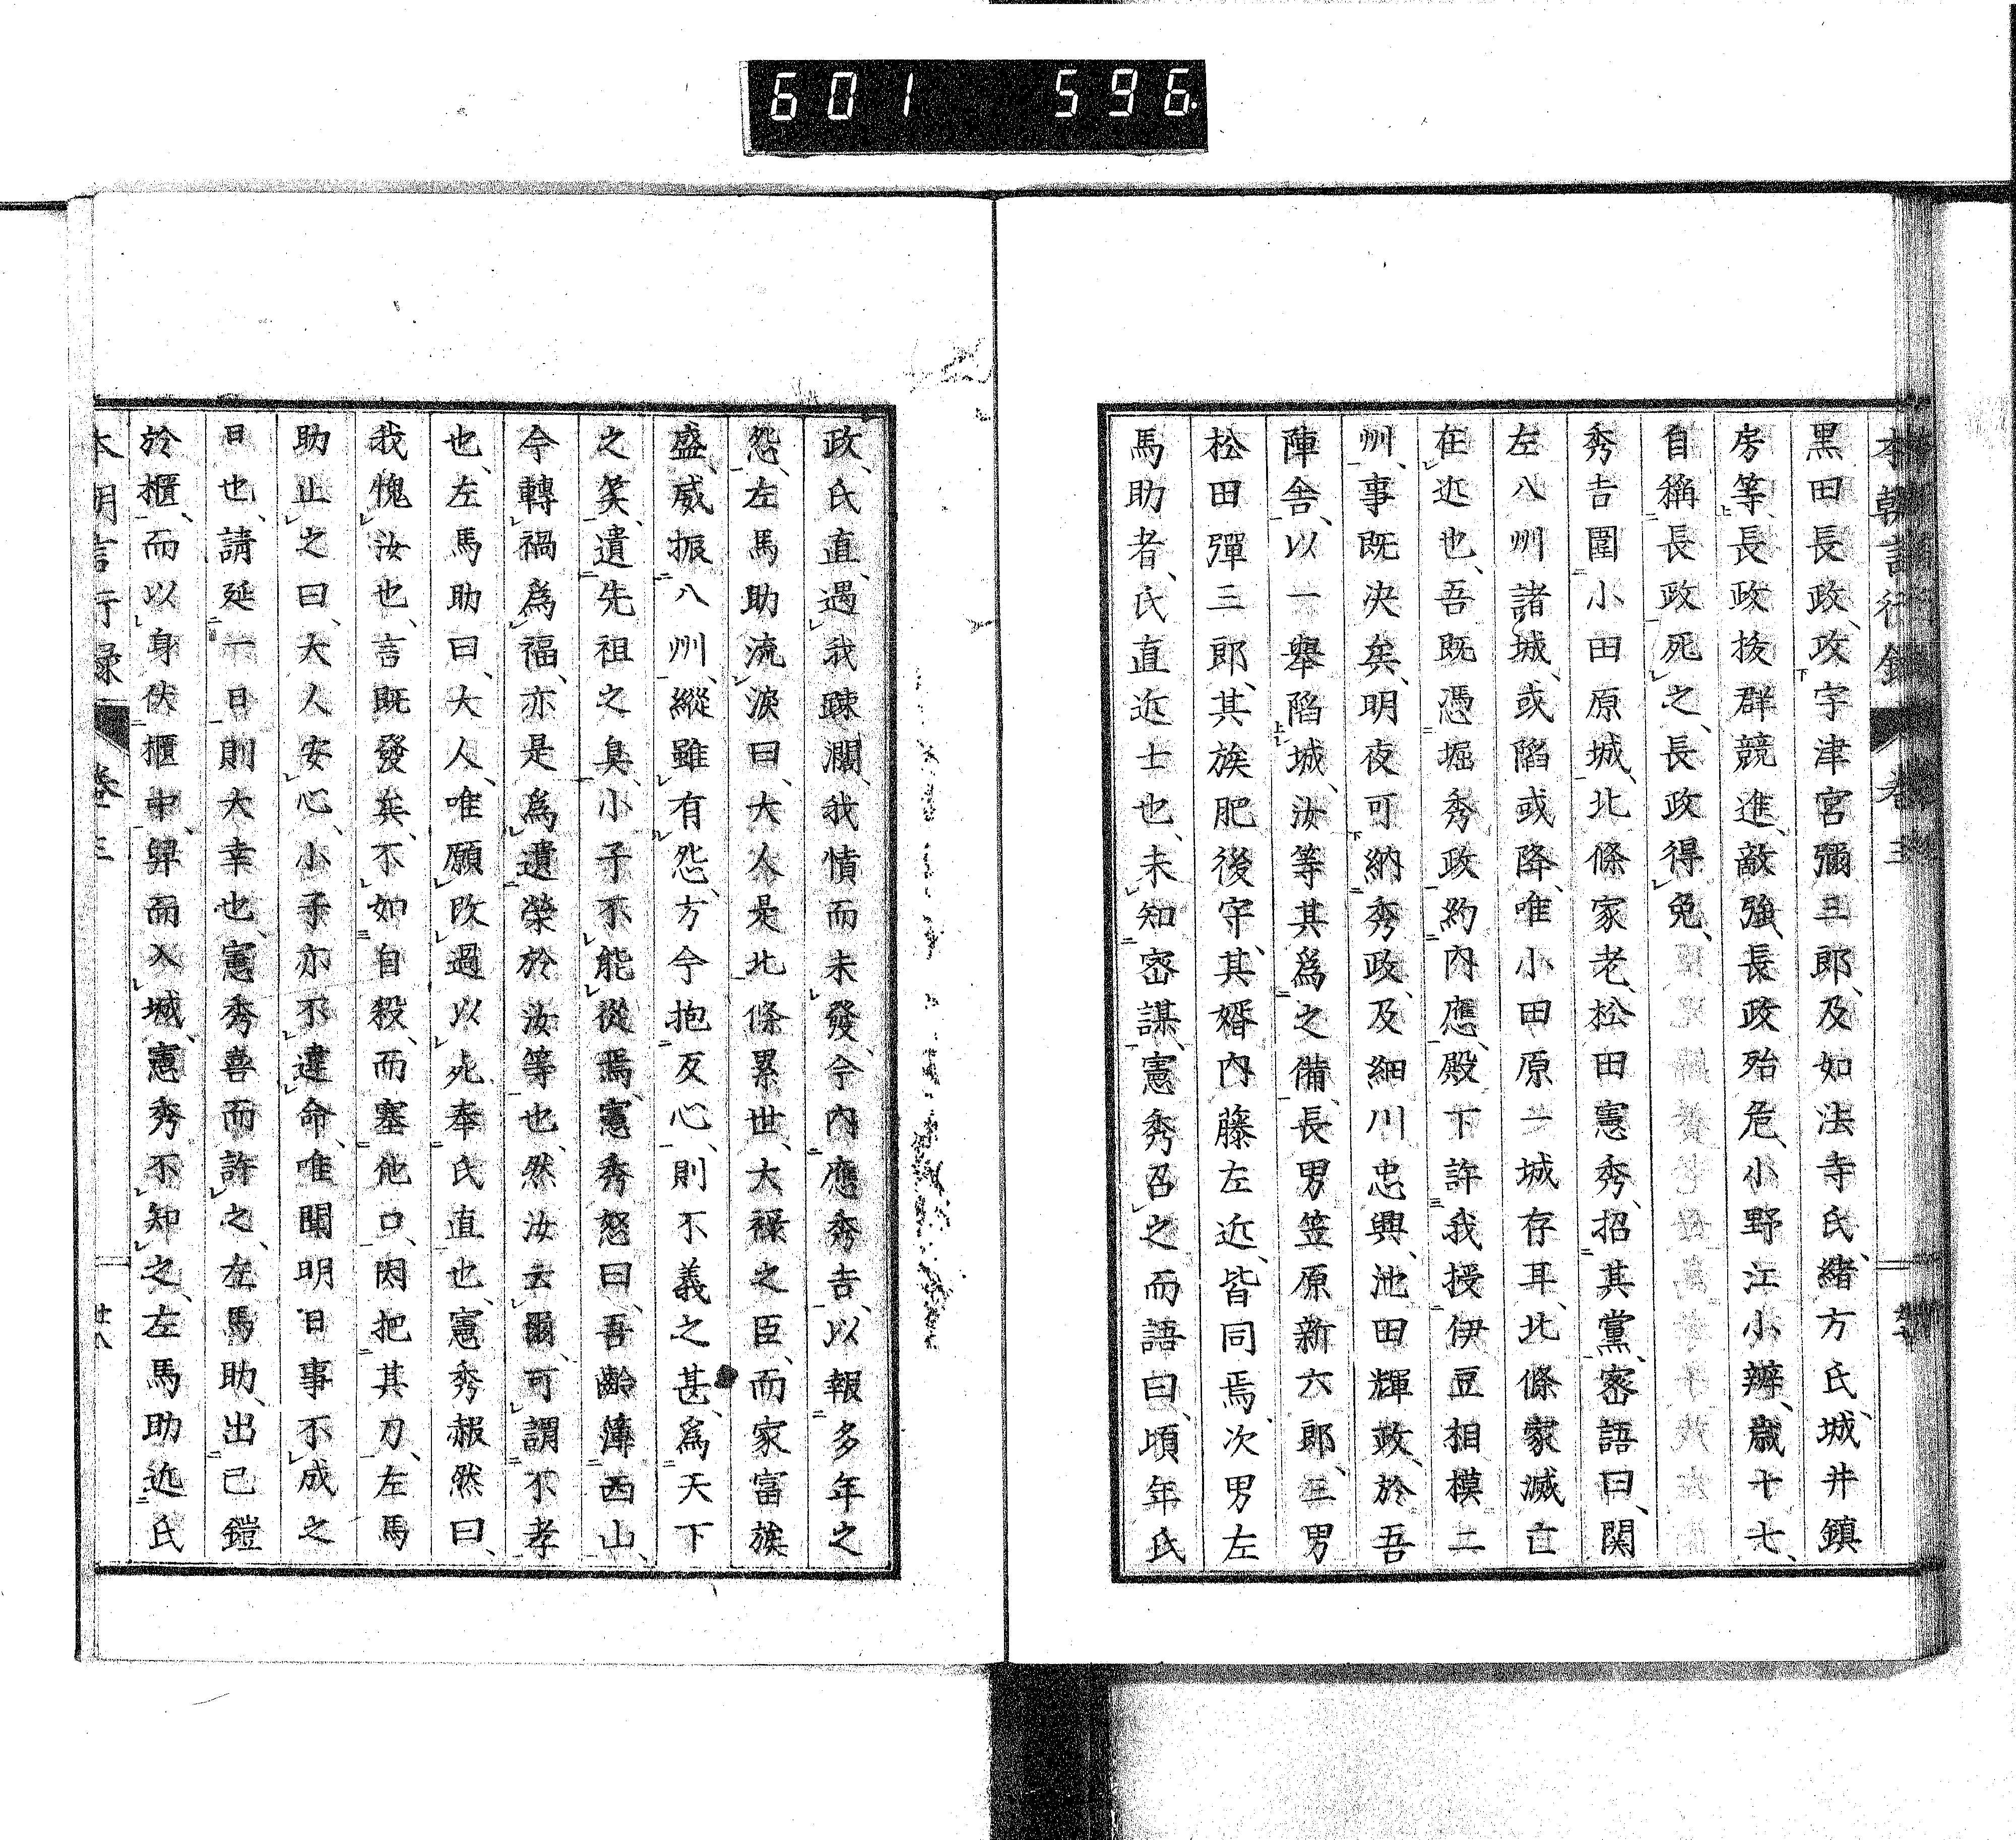 601 596
黒田長政、攻宇津宮彌三郎、及如法寺氏、緒方氏、城井鎮
房等、長政抜群競進、敵強、長政殆危、小野江小辨、歳十七、
自稱長政死之、長政得免、
秀吉圍小田原城、北條家老、松田憲秀、招其黨、密語曰、関
左八州諸城、或陷或降、唯小田原一城存耳、北條家滅亡
在近也、吾既憑堀秀政、約內應、殿下許我授伊豆相模二
州、事既決矣、明夜可納秀政、及細川忠興、池田輝政、於吾
陣舎、以一擧陷城、汝等其爲之備、長男笠原新六郎、三男
松田彈三郎、其族肥後守、其婿內藤左近、皆同焉、次男左
馬助者、氏直近士也、未知密謀、憲秀召之而語曰、頃年氏
政、氏直、遇我踈濶、我憤而未發、今內應秀吉、以報多年之
怨、左馬助流淚曰、大人是北條累世、大祿之臣、而家富族
盛、威振八州、縱雖有怨、方今抱反心、則不義之甚、爲天下
之笑、遺先祖之臭、小子不能從焉、憲秀怒曰、吾齡薄西山、
今轉禍爲福、亦是爲遺榮於汝等也、然汝云爾、可謂不孝
也、左馬助曰、大人、唯願改過以死奉氏直也、憲秀赧然曰、
我愧汝也、言既發矣、不如自殺、而塞他口、閃把其刀、左馬
助止之曰、大人安心、小子亦不違命、唯聞明日事不成之
日也、請延一日則大幸也、憲秀善而許之、左馬助、出己鎧
於櫃、而以身伏櫃中、舁而入城、憲秀不知之、左馬助近氏
言行録 卷三 廿八